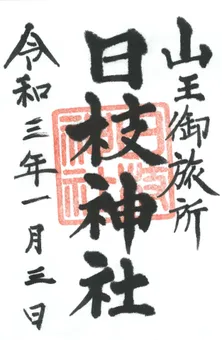 山王御旅所
日枝神社
令和三年一月三日